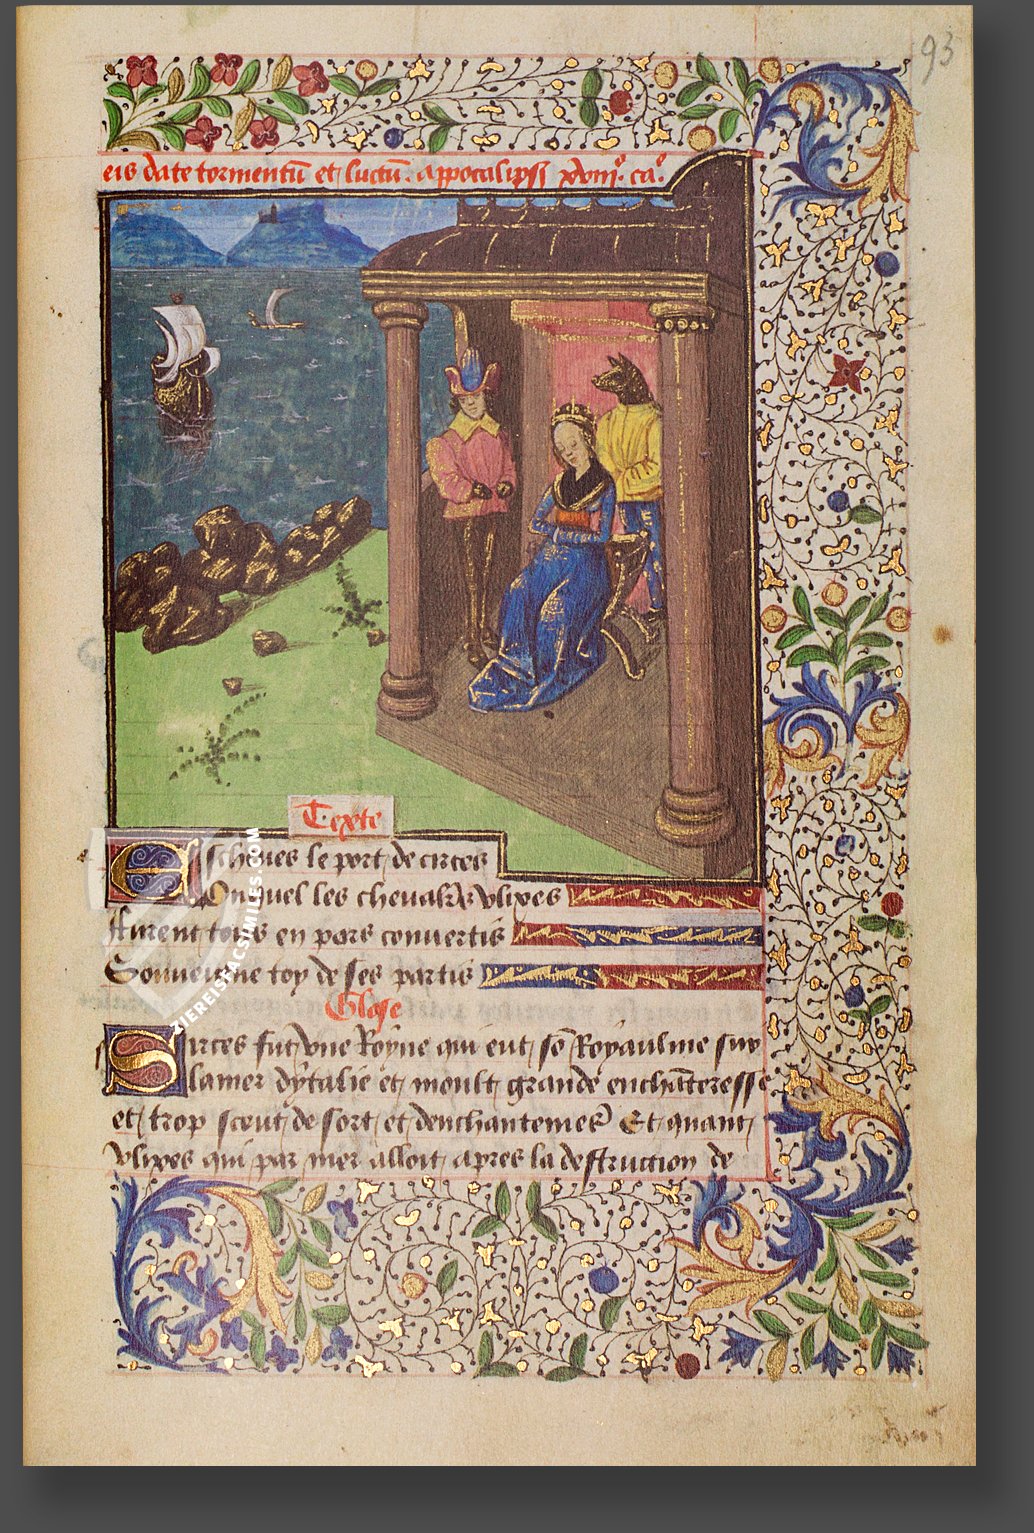 93
eis date tormentū et luctū. appocalipsi xviijº. caº.
Texte
Escheues le port de circes
Ou quel les cheualrs vlixes
Furent tous en pors conuertis
Souueigne toy de ses partis
Glose
Circes fut vne Royne qui eut sō Royaulme sur
la mer dytalie et moult grande enchāteresse
et trop sceut de sort et denchantemēs Et quant
vlixes qui par mer alloit apres la destruction de
ZIEREISFACSIMILES.COM